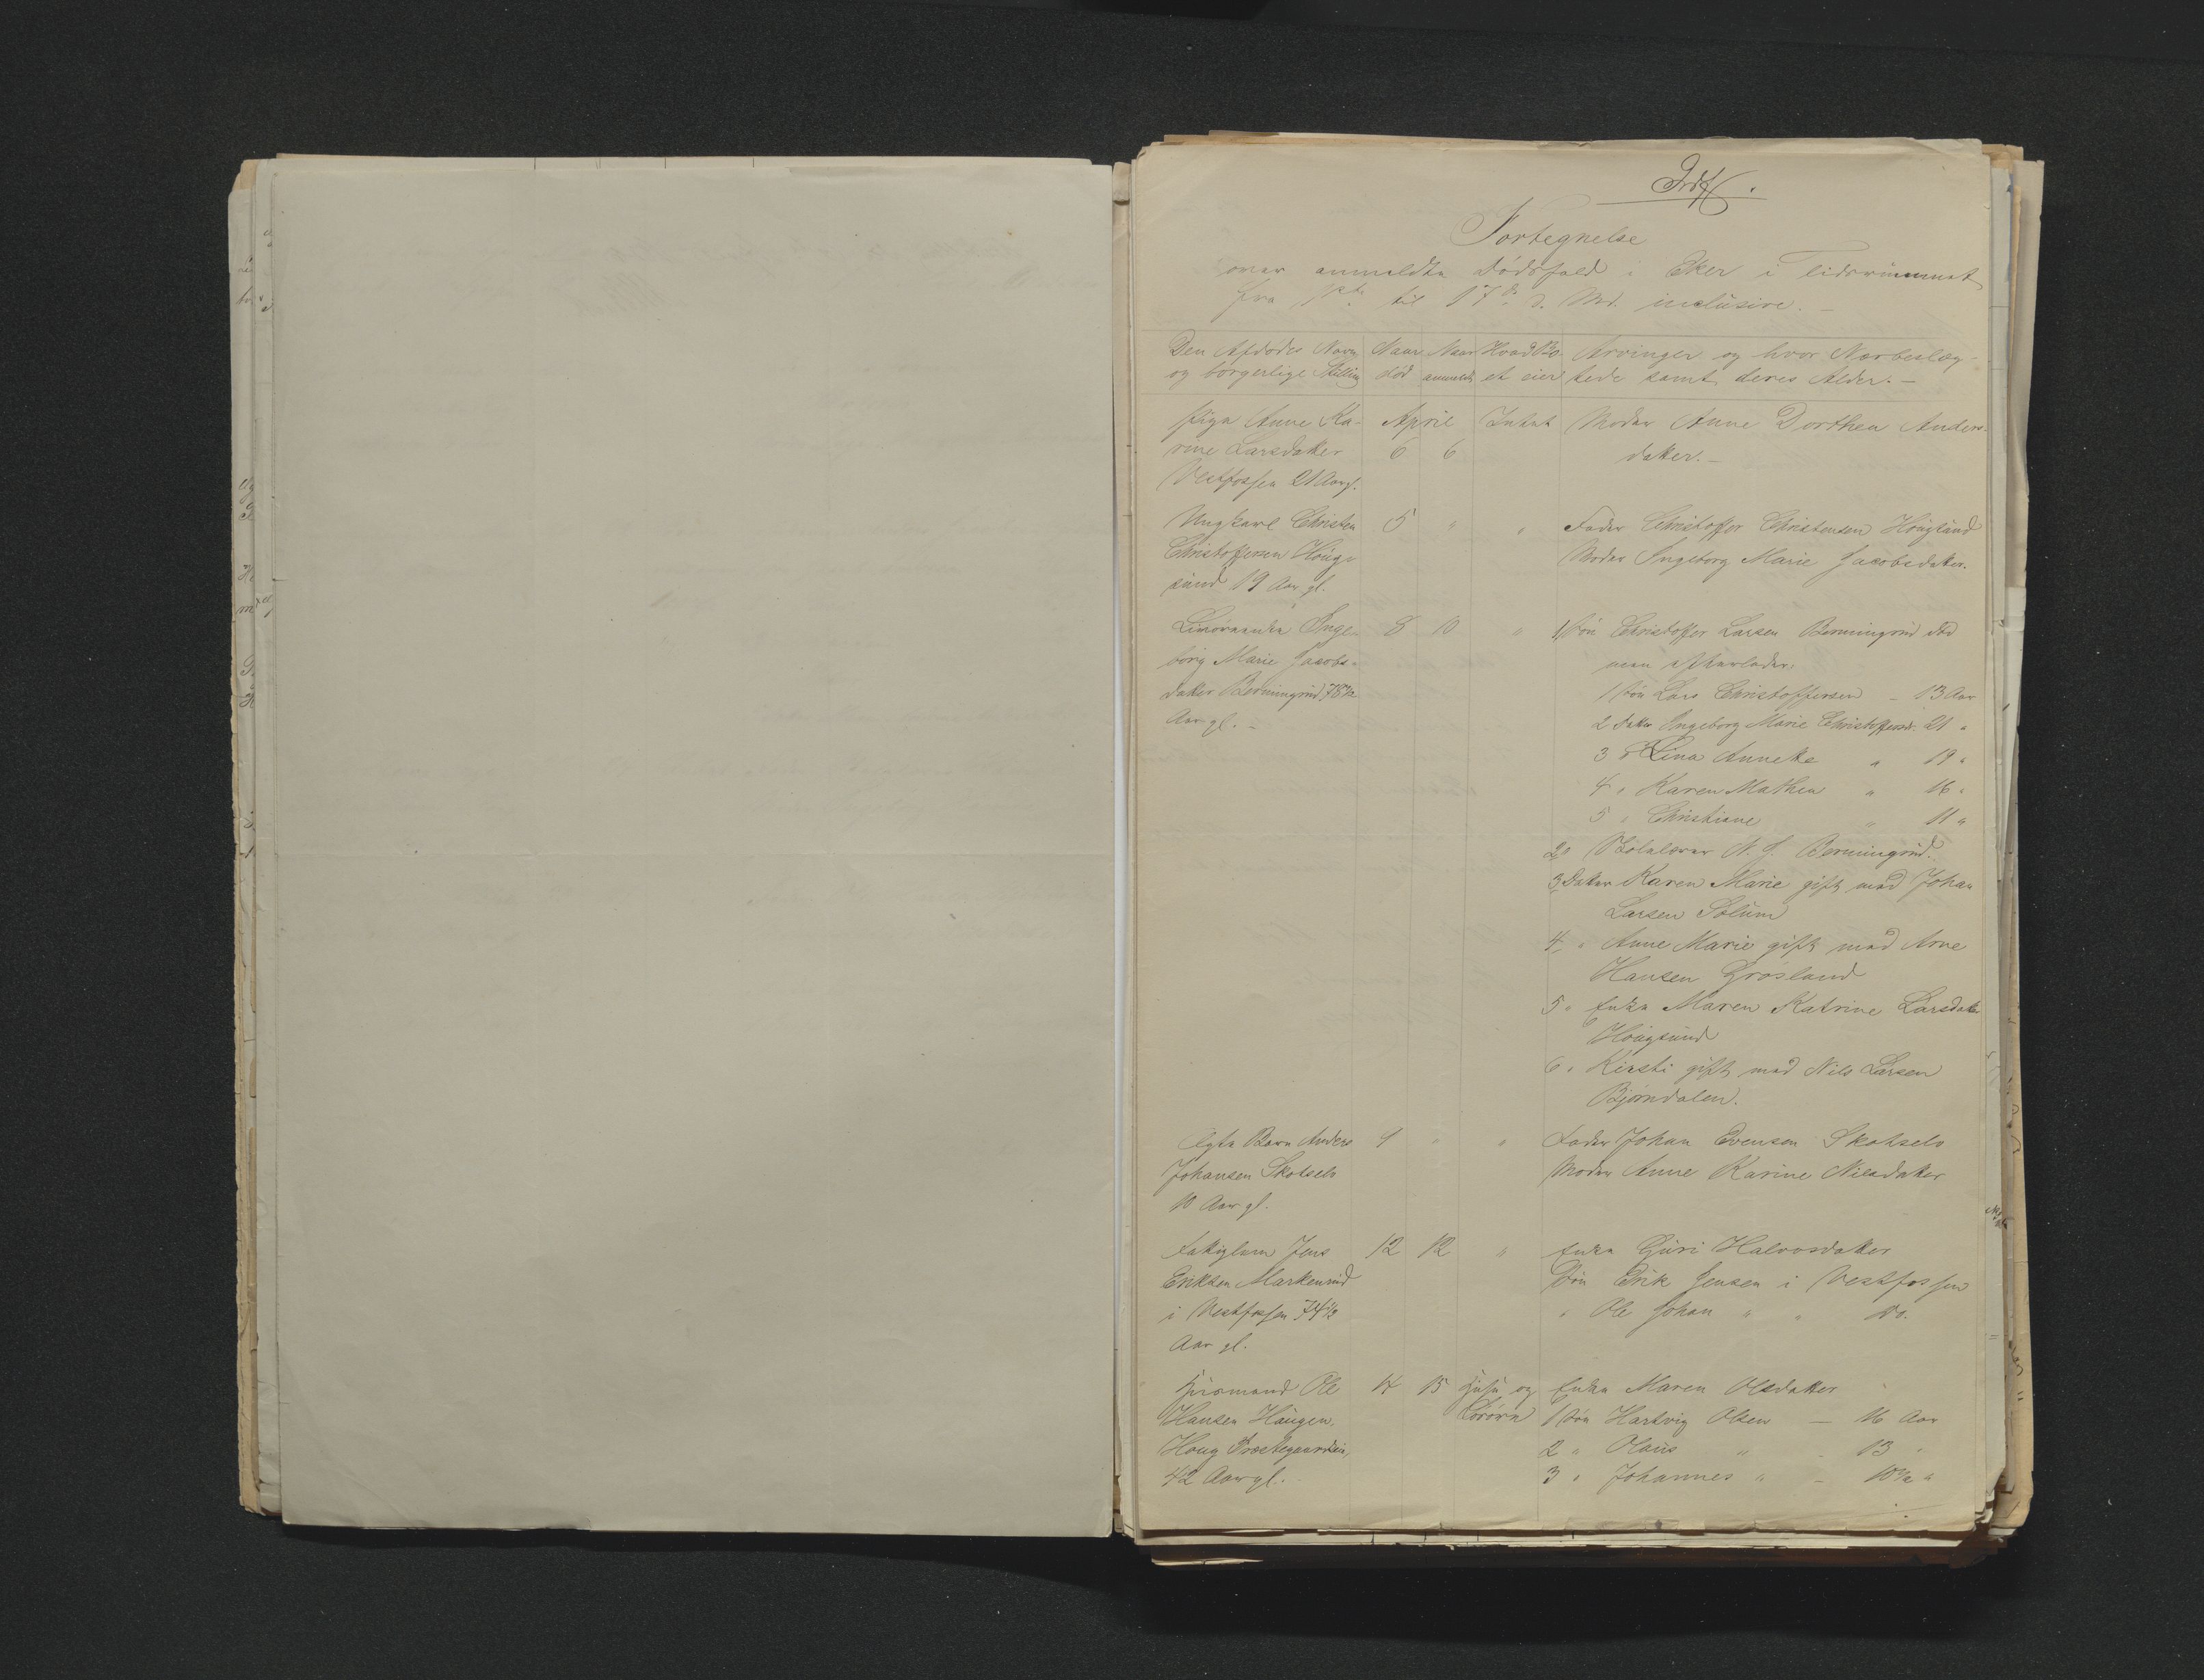 Fortegnelse
over anmeldte Dødsfald i Eker i Tidsrummet
fra 1ste til 17de d. Md. inclusive. –
Den Afdødes Navn og borgerlige Stilling | Naar død | Naar anmeldt | Hvad Boet eier | Arvinger og hvor Nærbeslægtede samt deres Alder. –
Pige Anne Ka- | April | Intet | Moder Anne Dorthea Anders-
rine Larsdatter 6 6 datter. –
Vestfossen 21 Aar gl.
Ungkarl Christen 5 " " Fader Christoffer Christensen Hougsund
Christoffersen Houg- Moder Ingeborg Marie Jacobsdatter.
sund 19 Aar gl.
Inge- 8 10 " 1, Søn Christoffer Larsen Bermingrud død
borg Marie Jacobs- men efterlader:
datter Bermingrud 78½ 1 Søn Lars Christoffersen – 13 Aar
Aar gl. – 2 Datter Ingeborg Marie Christoffersd. 21 "
3 Lina Anneke " 19 "
4 " Karen Mathea " 16 "
5 " Christiane " 11 "
2, N. J. Bermingrud.
3, Datter Karen Marie gift med Johan
Larsen Solum
4, " Anne Marie gift med Arne
Hansen Grøsland
5 " Enke Maren Katrine Larsdatter
Hougsund
6 " Kirsti gift med Nils Larsen
Bjørndalen.
Ægte Barn Anders 9 " " Fader Johan Evensen Skotselv
Johansen Skotselv Moder Anne Karine Nilsdatter
10 Aar gl.
Fattiglem Jens 12 12 " Enke Guri Halvorsdatter
Eriksen Markerud Søn Erik Jensen i Vestfossen
i Vestfossen 74½ " Ole Johan " " do.
Aar gl.
Husmand Ole 14 15 Huse og Enke Maren Olsdatter
Hansen Haugen, 1 Søn Hartvig Olsen – 16 Aar
Houg Præstegaardseie, 2 " Olaus " – 13 "
42 Aar gl. 3 " Johannes " – 10½ "